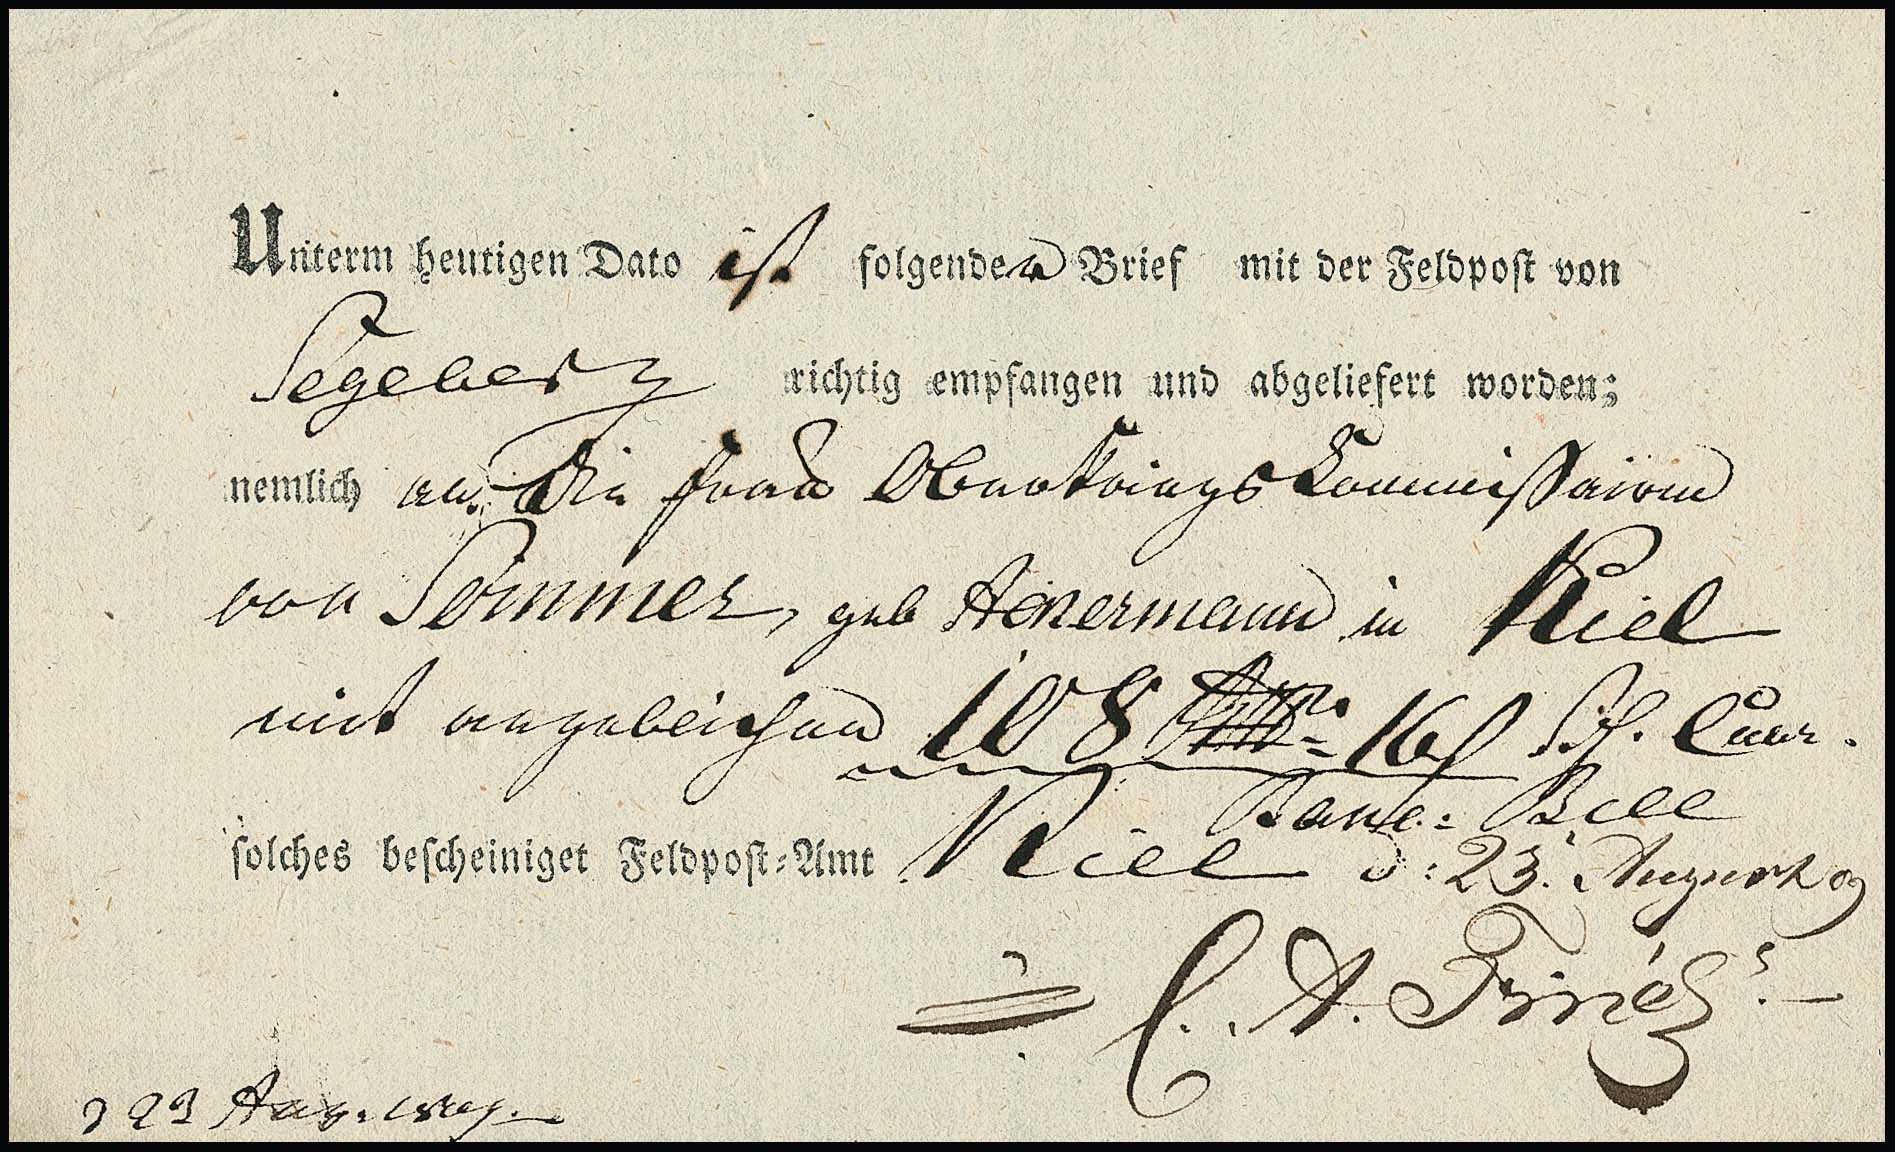 Unterm heutigen Dato ist folgender Brief mit der Feldpost von
Segeberg richtig empfangen und abgeliefert worden;
nemlich an die Frau OberKriegsKommissairin
von Sommer, geb Ackermann in Kiel
mit angeblichen 108 16 ß Sch. Cour.
Banc: Bill
solches bescheiniget Feldpost-Amt Kiel d: 23. August 09
C. A. Fries
d 23 Aug.